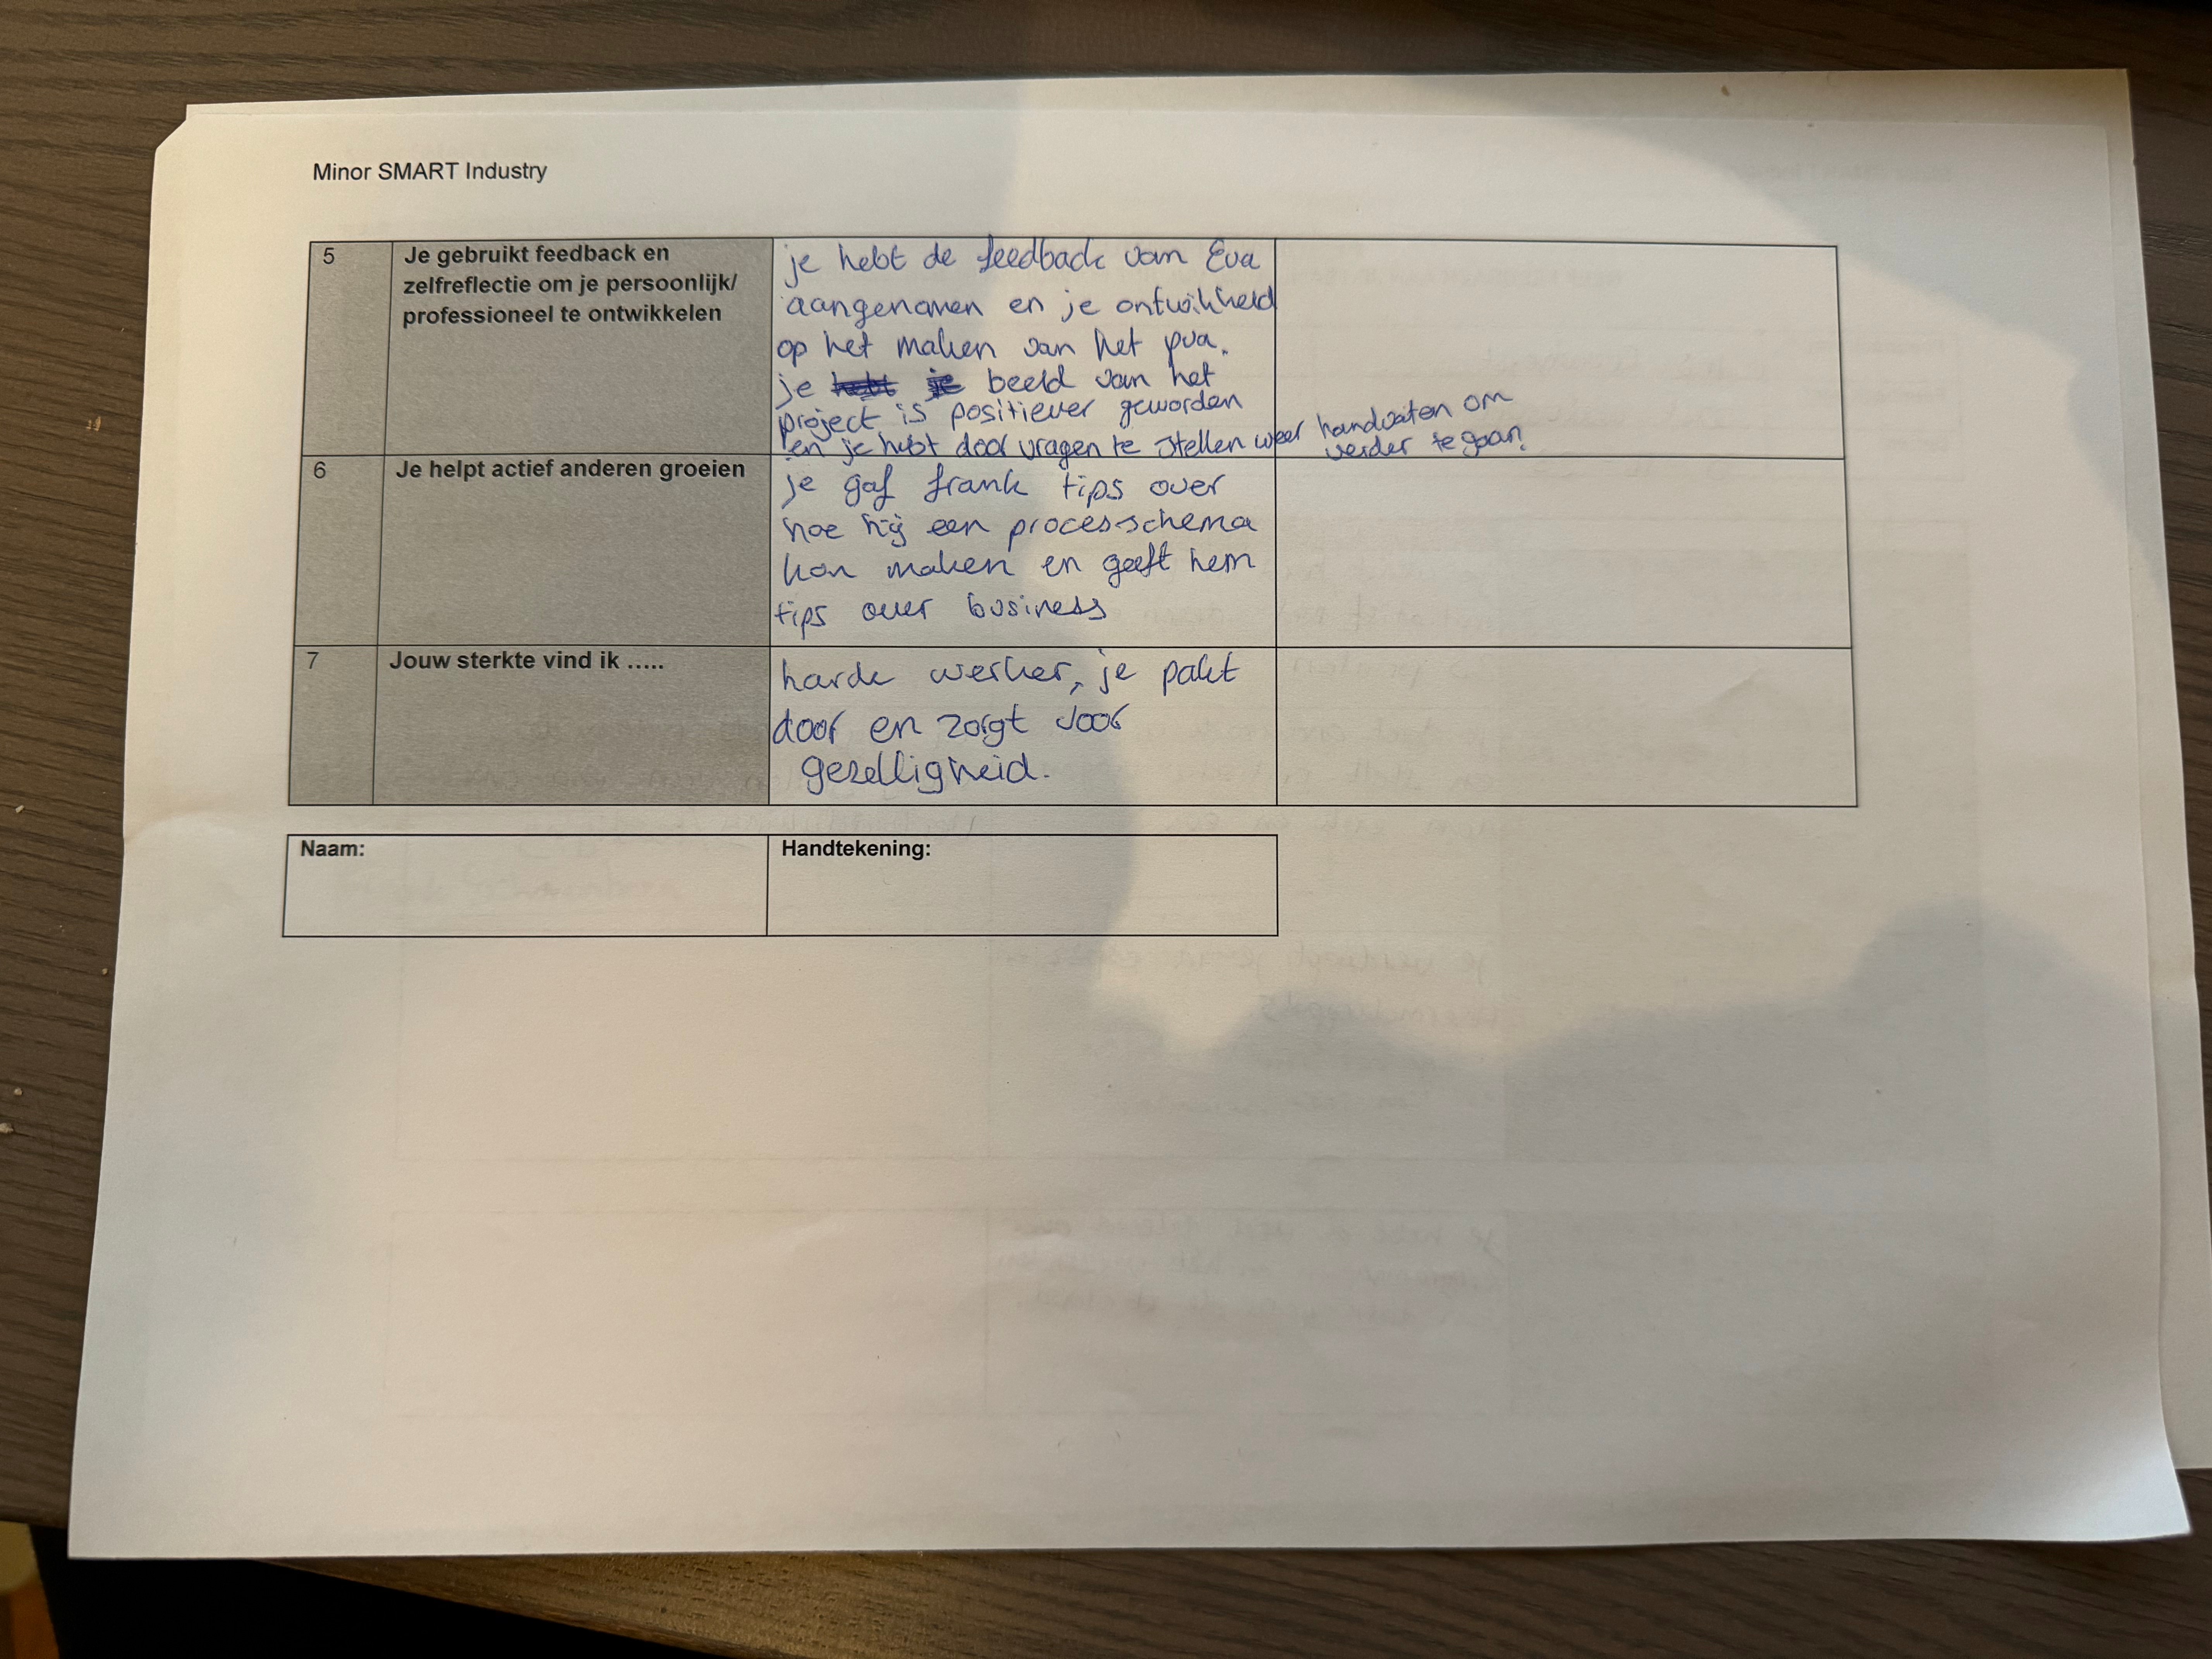 Minor SMART Industry
5
Je gebruikt feedback en
zelfreflectie om je persoonlijk/
professioneel te ontwikkelen
je hebt de feedback van Eva
aangenomen en je ontwikkeld
op het maken van het pva.
je beeld van het
project is positiever geworden
en je hebt door vragen te stellen weer handvaten om
verder te gaan
6
Je helpt actief anderen groeien
je gaf frank tips over
hoe hij een processchema
kon maken en geeft hem
tips over business
7
Jouw sterkte vind ik .....
harde werker, je pakt
door en zorgt voor
gezelligheid.
Naam:
Handtekening: